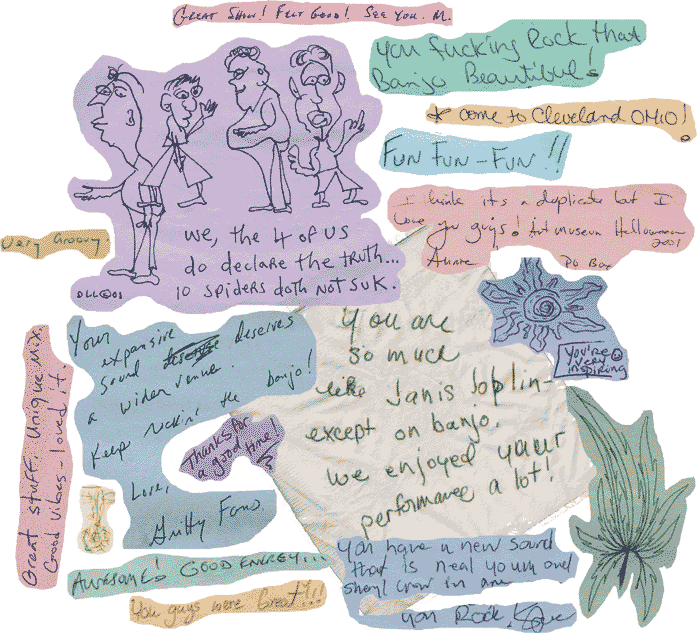 GREAT SHOW! FELT GOOD! SEE YOU. M.
You fucking Rock that
Banjo Beautiful!
* come to Cleveland OHIO!
FUN FUN-FUN!!
I think its a duplicate but I
Love you guys! Art museum Halloween
2001
PO Box
Very Groovy
we, the 4 of us
do declare the truth...
10 spiders doth not suk.
DLL©01
You're
very
inspiring
Great stuff. Unique mix.
Good vibes - loved it.
Your expansive
sound deserves
a wider venue.
Keep rockin' the banjo!
Love,
Gritty Fans.
Thanks for
a good time!
You are
so much
like Janis Joplin-
except on banjo.
we enjoyed your
performance a lot!
Awesome! GOOD ENERGY...
You guys were Great!!!
You have a new sound
that is neal young and
sheryl crow in one
You Rock!